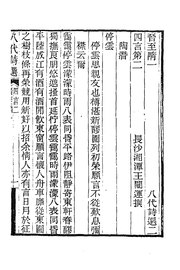 晉至隋一 八代詩選二
四言第二 長沙湘潭王闓運撰
陶潛
停雲
停雲思親友也罇湛新醪園列初榮願言不從歎息彌
襟云爾
靄靄停雲濛濛時雨八表同昏平路伊阻靜寄東軒春醪
獨撫良朋悠邈搔首延佇停雲靄靄時雨濛濛八表同昏
平陸成江有酒有酒閒飲東窗願言懷人舟車靡從東園
之樹枝條再榮競用新好以招余情人亦有言日月於征
八代詩選